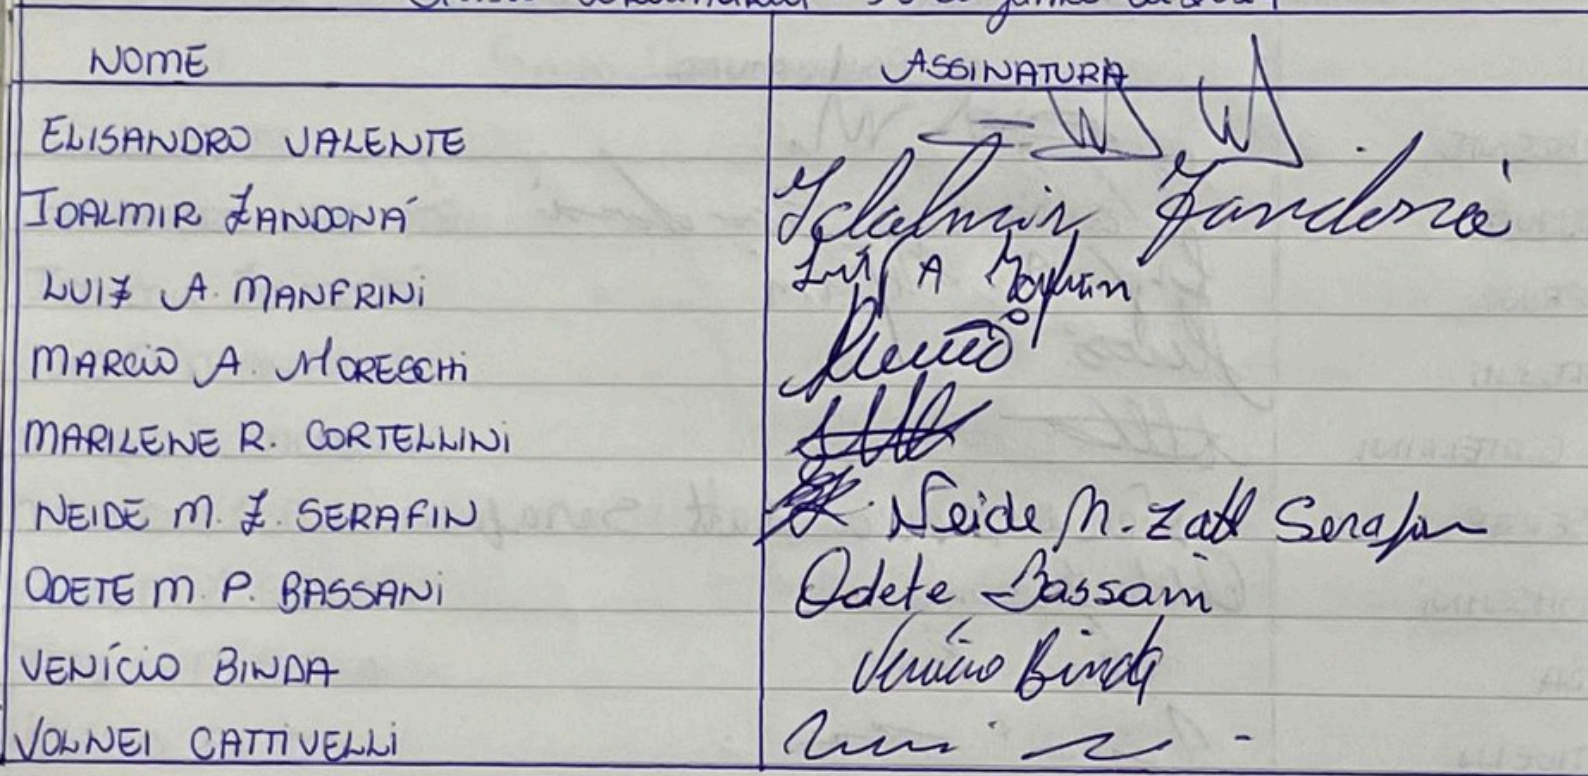 NOME ASSINATURA
ELISANDRO VALENTE
IDALMIR ZANDONÁ Idalmir Zandoná
LUIZ A. MANFRINI Luiz A
MARCIO A. MORESCHI
MARILENE R. CORTELLINI
NEIDE M. Z. SERAFIN Neide M. Zatt Serafin
ODETE M. P. BASSANI Odete Bassani
VENÍCIO BINDA Venício Binda
VOLNEI CATTIVELLI